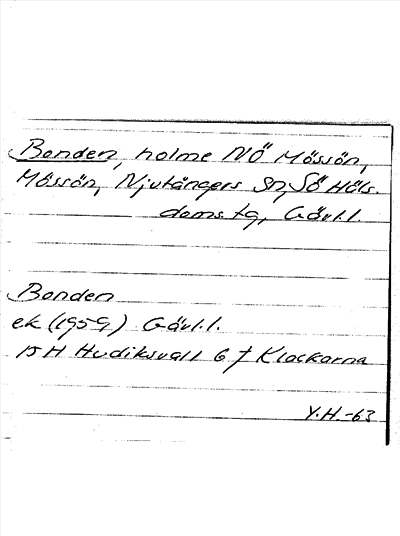 Bonden, holme NÖ Mössön,
Mössön, Njutångers sn, SÖ Häls.
doms tg, Gävl.l.
Bonden
ek (1959) Gävl.l.
15H Hudiksvall 6 f Klackarna
Y.H.-63